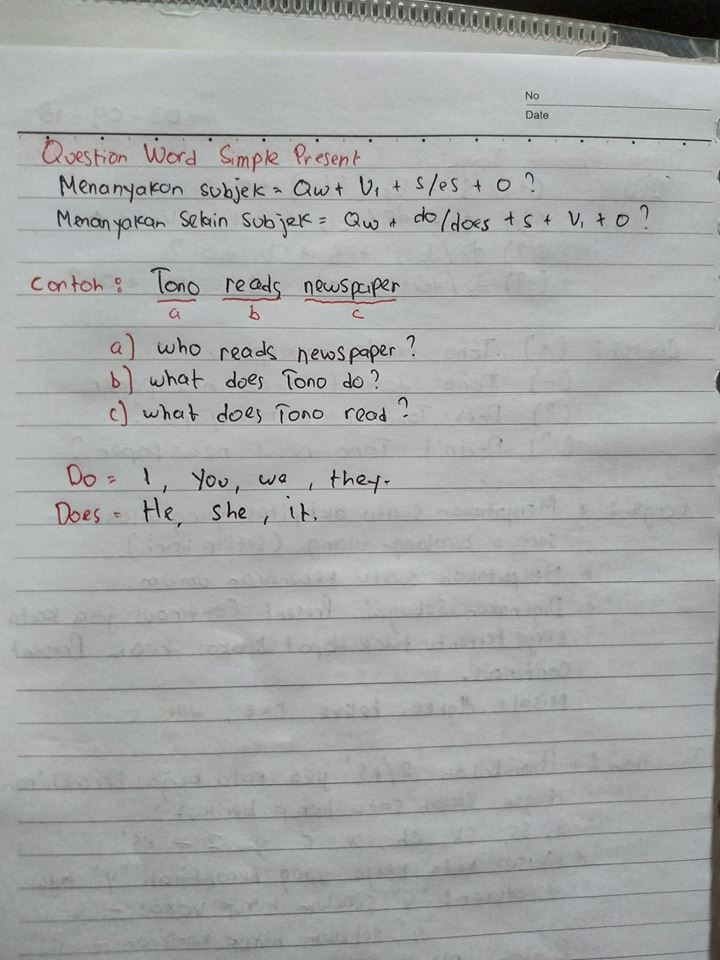 No
Date
Question Word Simple Present
Menanyakan subjek = QW + V1 + s/es + O ?
Menanyakan selain subjek = QW + do/does + s + V1 + O ?
Contoh : Tono reads newspaper
a b c
a) who reads newspaper ?
b) what does Tono do ?
c) what does Tono read ?
Do = I, you, we, they.
Does = He, she, it.